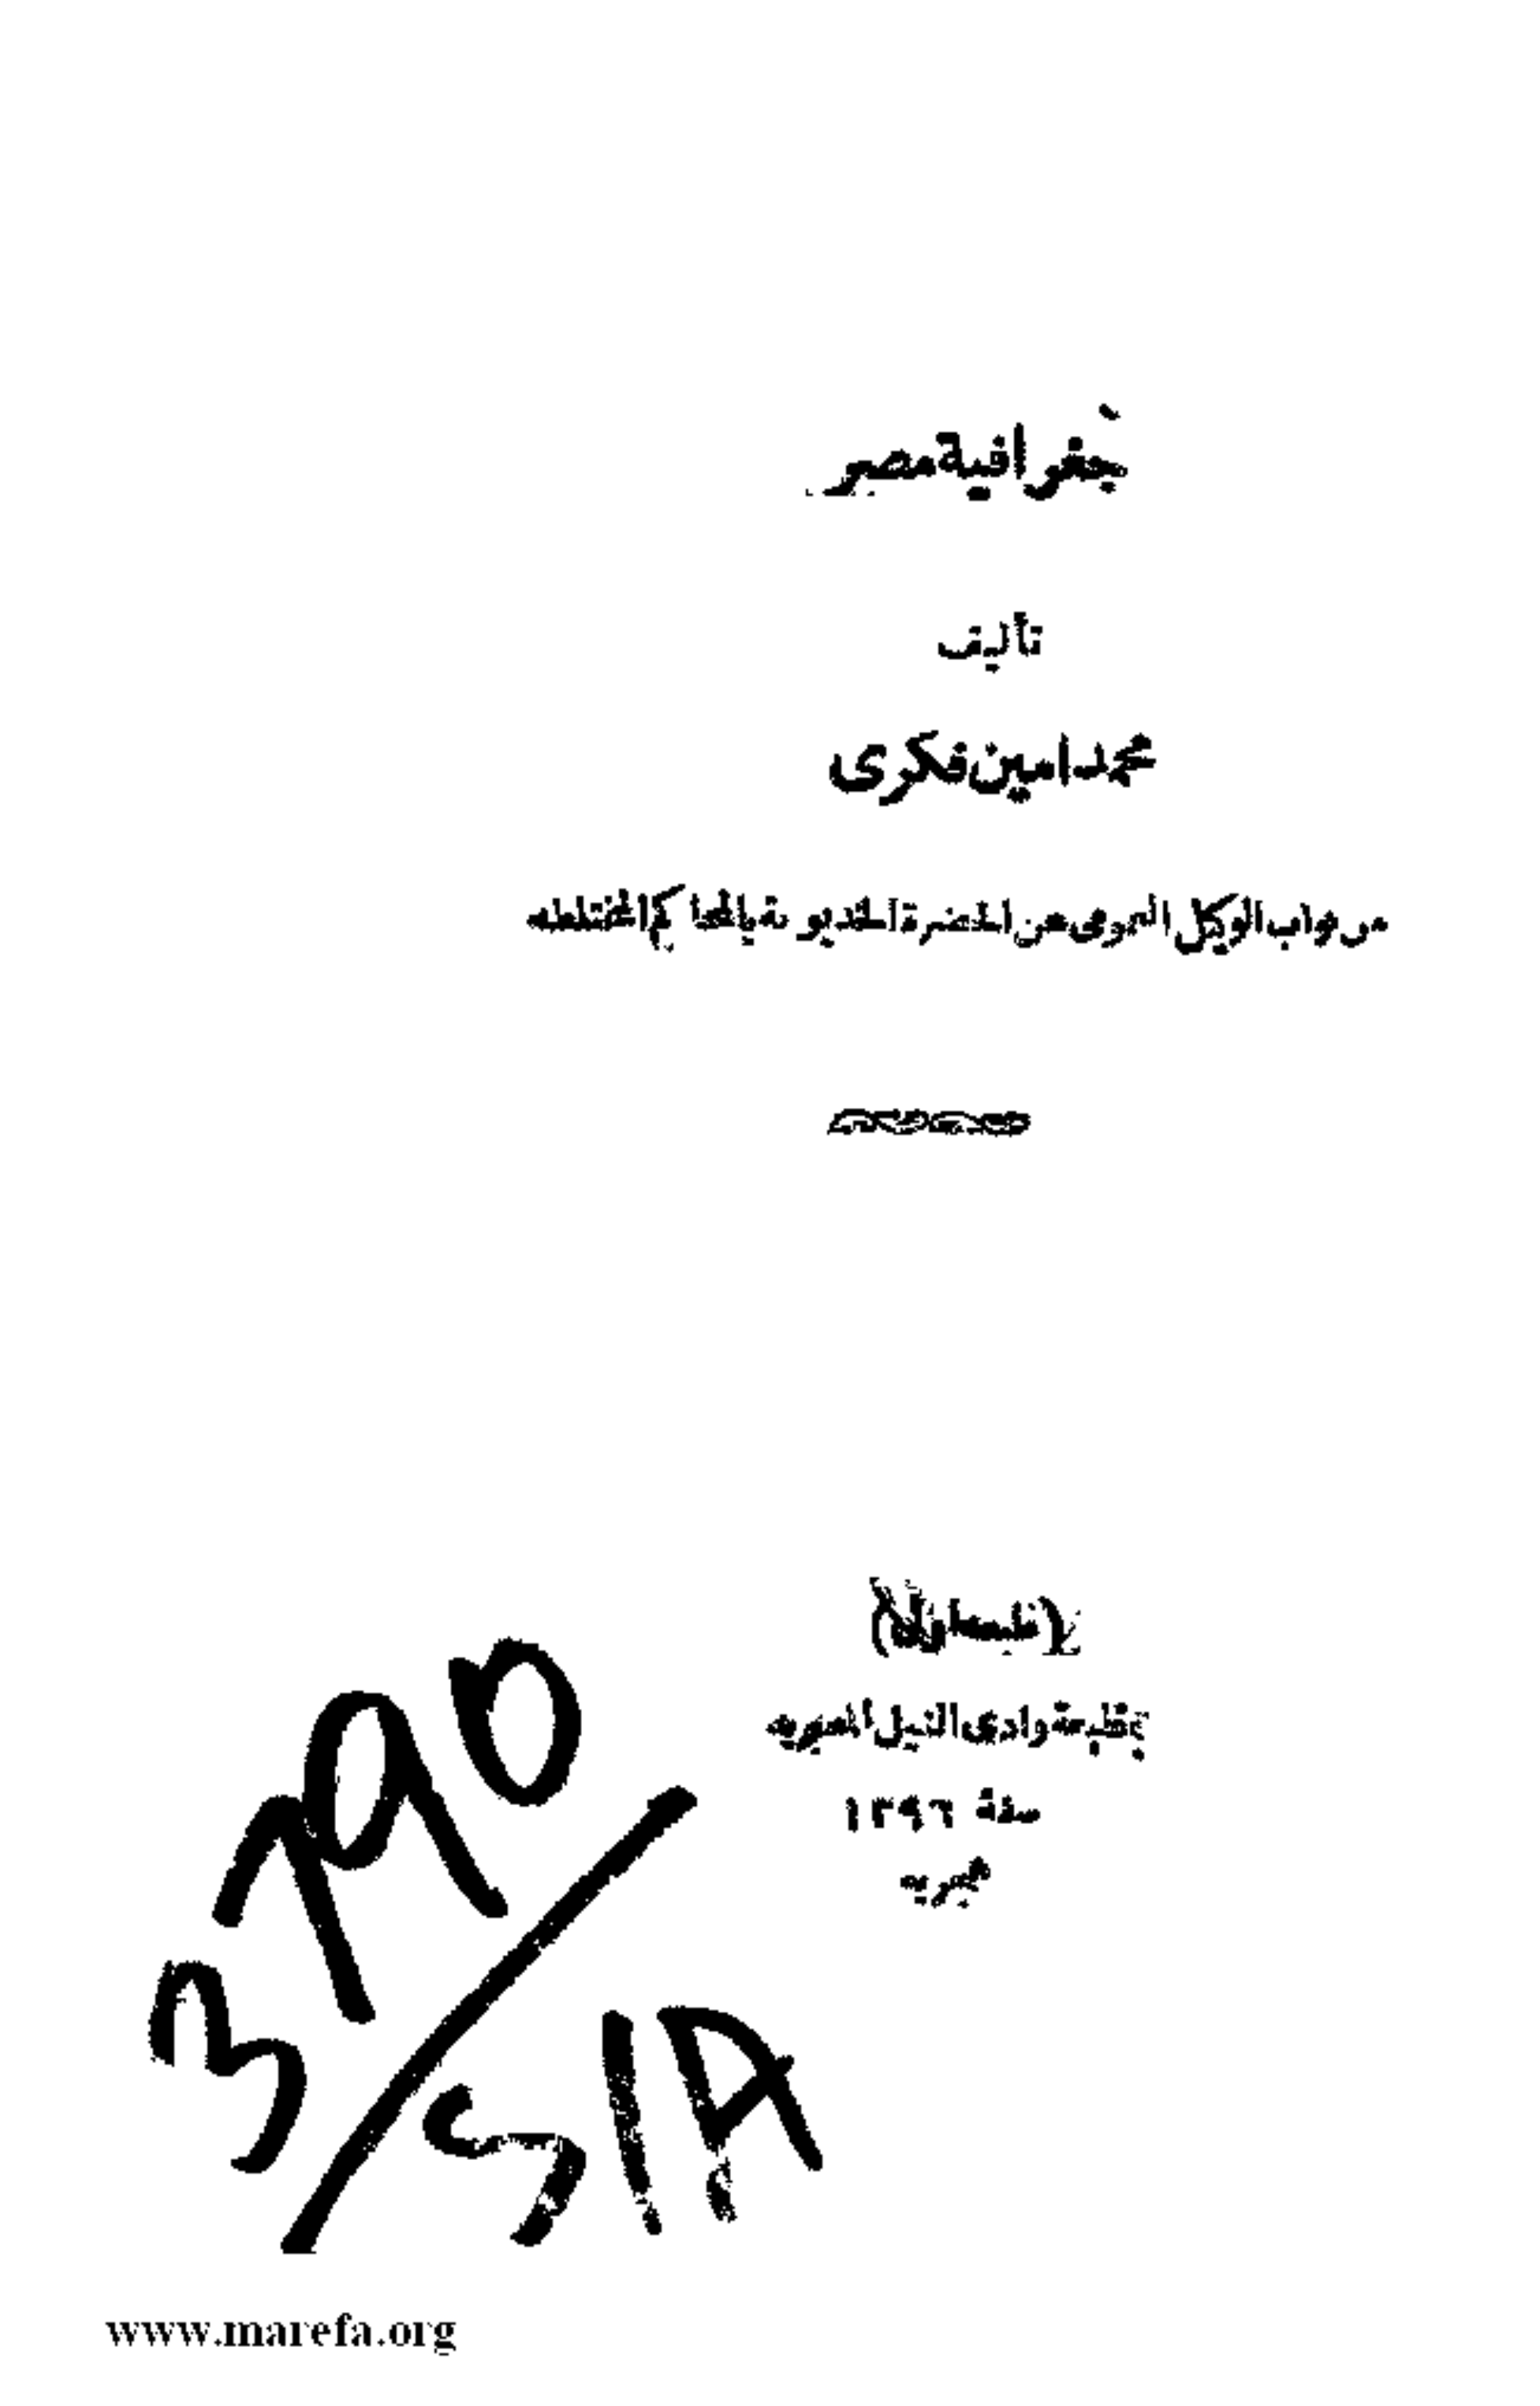 جغرافية مصر
تأليف
محمد امين فكرى
من نواب الوكيل العمومى عن الحضرة الخديوية بالمحاكم المختلطه
(الطبعة الاولى)
بمطبعة وادى النيل المصريه
سنة ١٢٩٦
هجريه
www.marefa.org